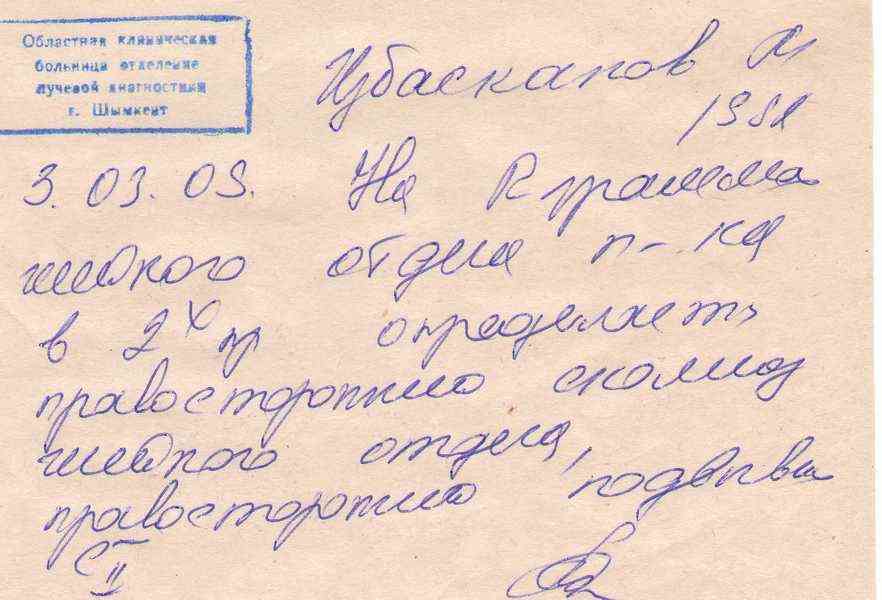 Областная клиническая
больница отделение
лучевой диагностики
г. Шымкент
Избасканов
3. 03. 09. На R грамма
шейного отдела п-ка
в 2х пр определяеть
правосторонно сколиоз
шейного отдела,
правосторонно подвыви
C II